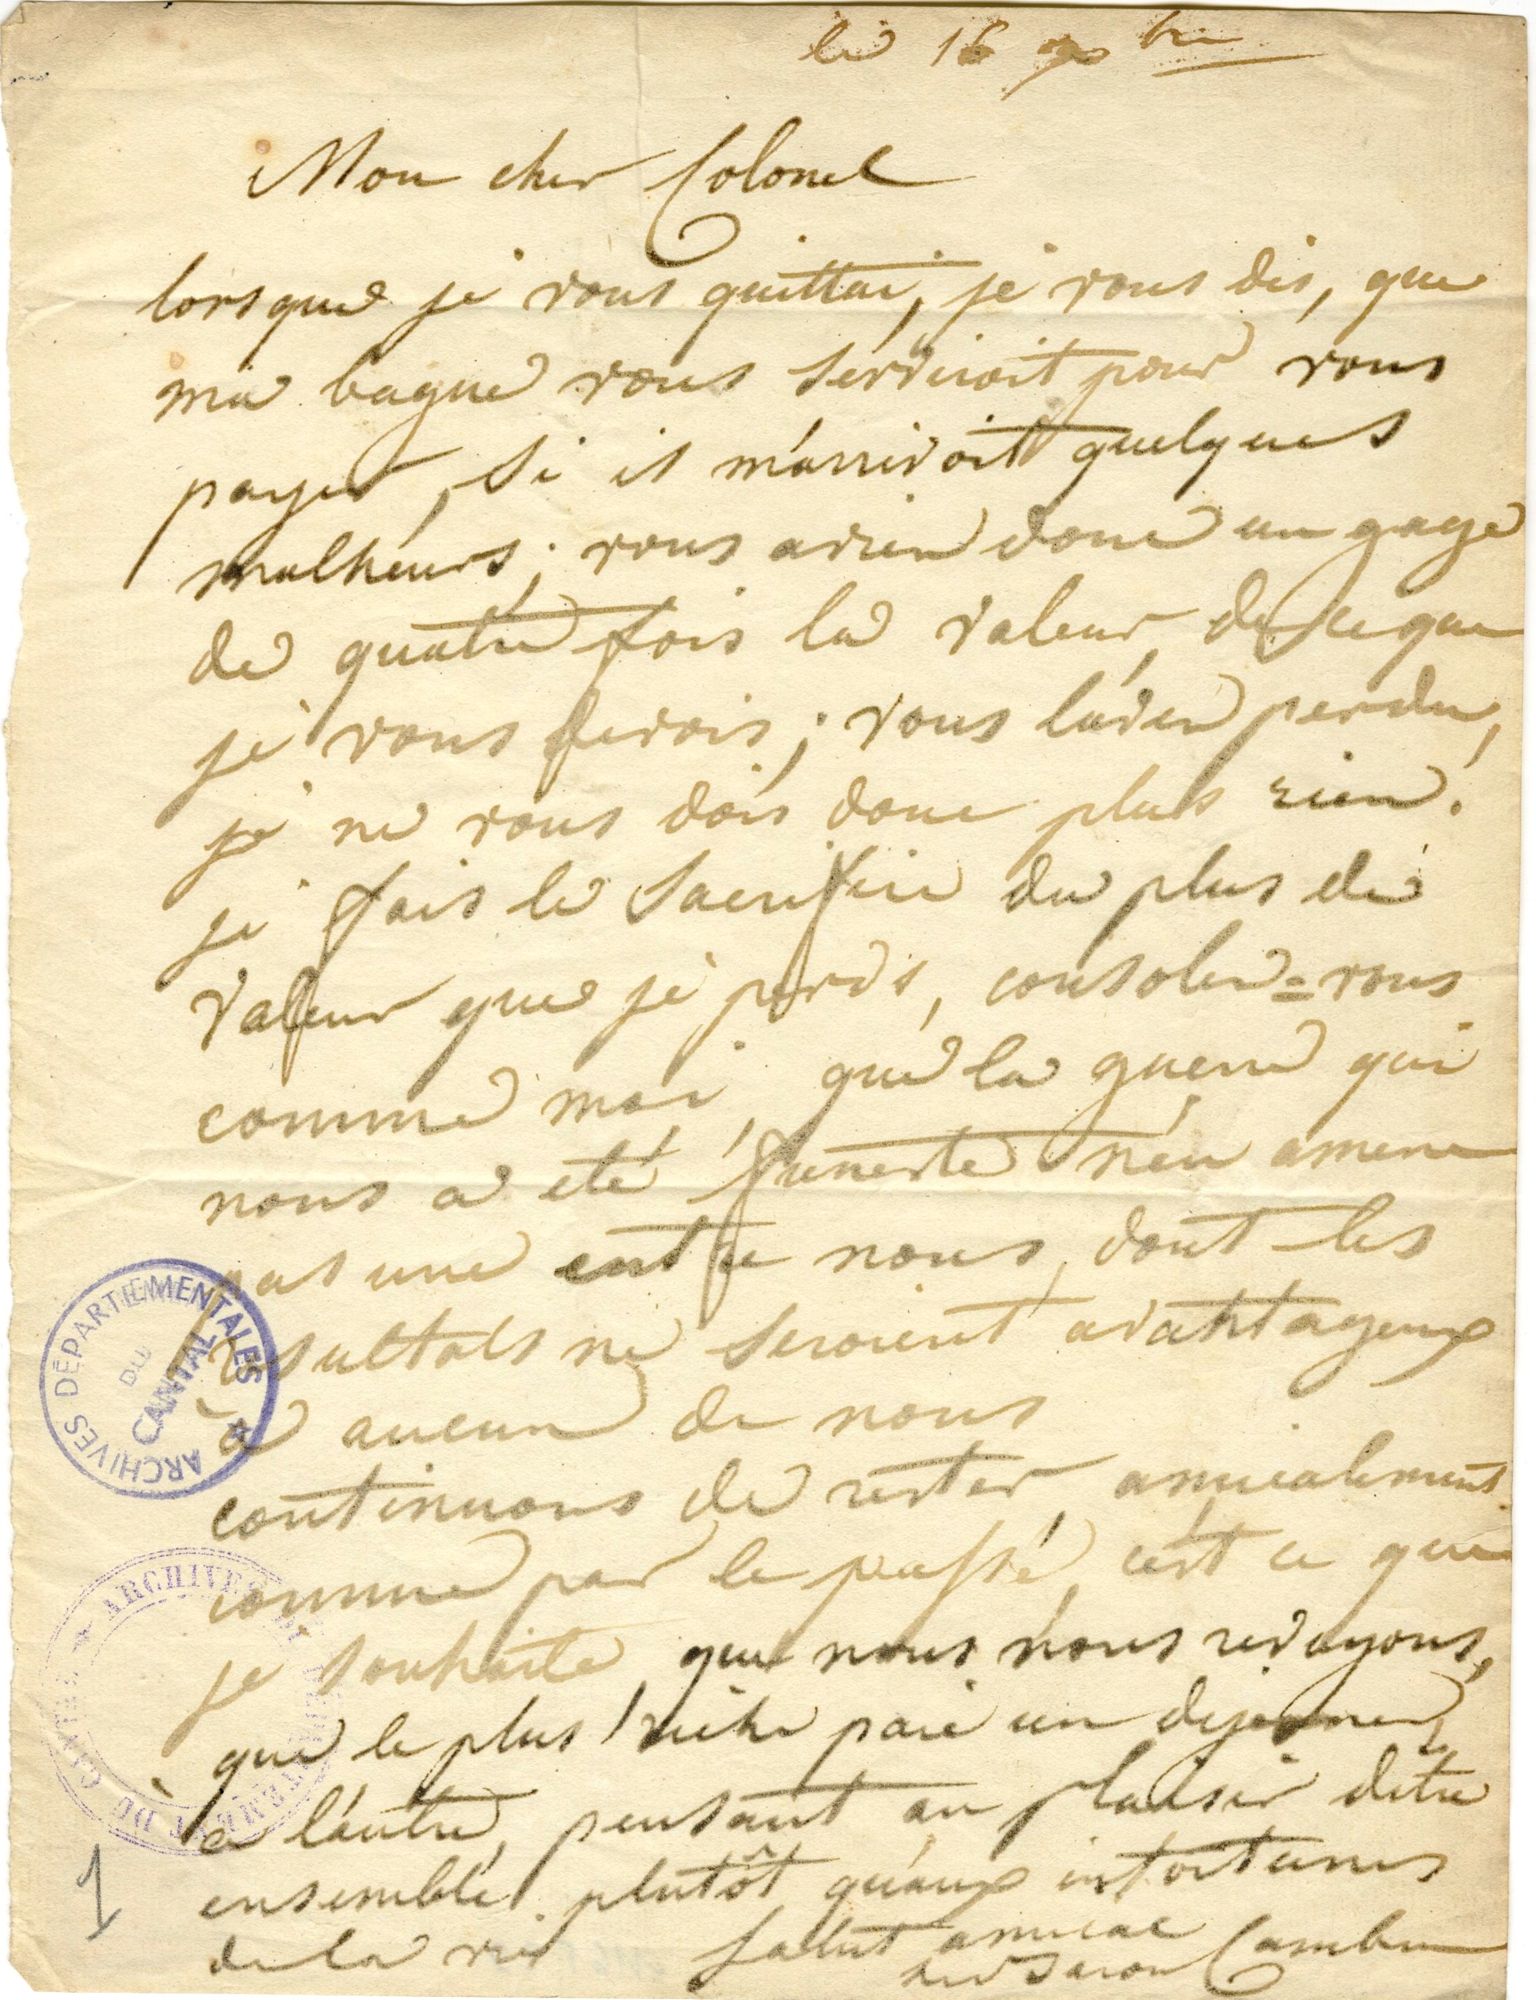 le 16 9bre
Mon cher Colonel
lorsque je vous quittai, je vous dis, que
ma bague vous serviroit pour vous
payer, si il m'arrivoit quelques
malheurs; vous aviez donc un gage
de quatre fois la valeur, de ce que
je vous devois; vous l'avez perdu,
je ne vous dois donc plus rien.
je fais le sacrifice du plus de
valeur que je perds, consolez=vous
comme moi, que la guerre qui
nous a été funeste n'en amene
pas une entre nous, dont les
resultats ne seroient avantageux
à aucun de nous
continuons de rester, amicalement
comme par le passé, c'est ce que
je souhaite, que nous nous revoyons,
que le plus riche paie un dejeuner,
à l'autre, pensant au plaisir detre
ensemble plutôt qu'aux infortunes
de la vie salut amical
Baron Cambron
ARCHIVES DÉPARTEMENTALES
DU
CANTAL
ARCHIVES DU
DU CANTAL
1